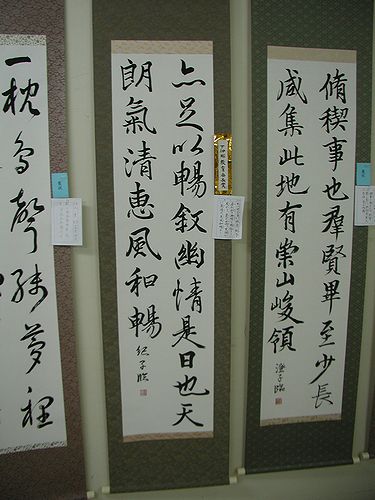 脩稧事也羣賢畢至少長
咸集此地有崇山峻領
澄子臨
亦足以暢叙幽情是日也天
朗氣清惠風和暢
紀子臨
一枕鳥聲殘夢裡